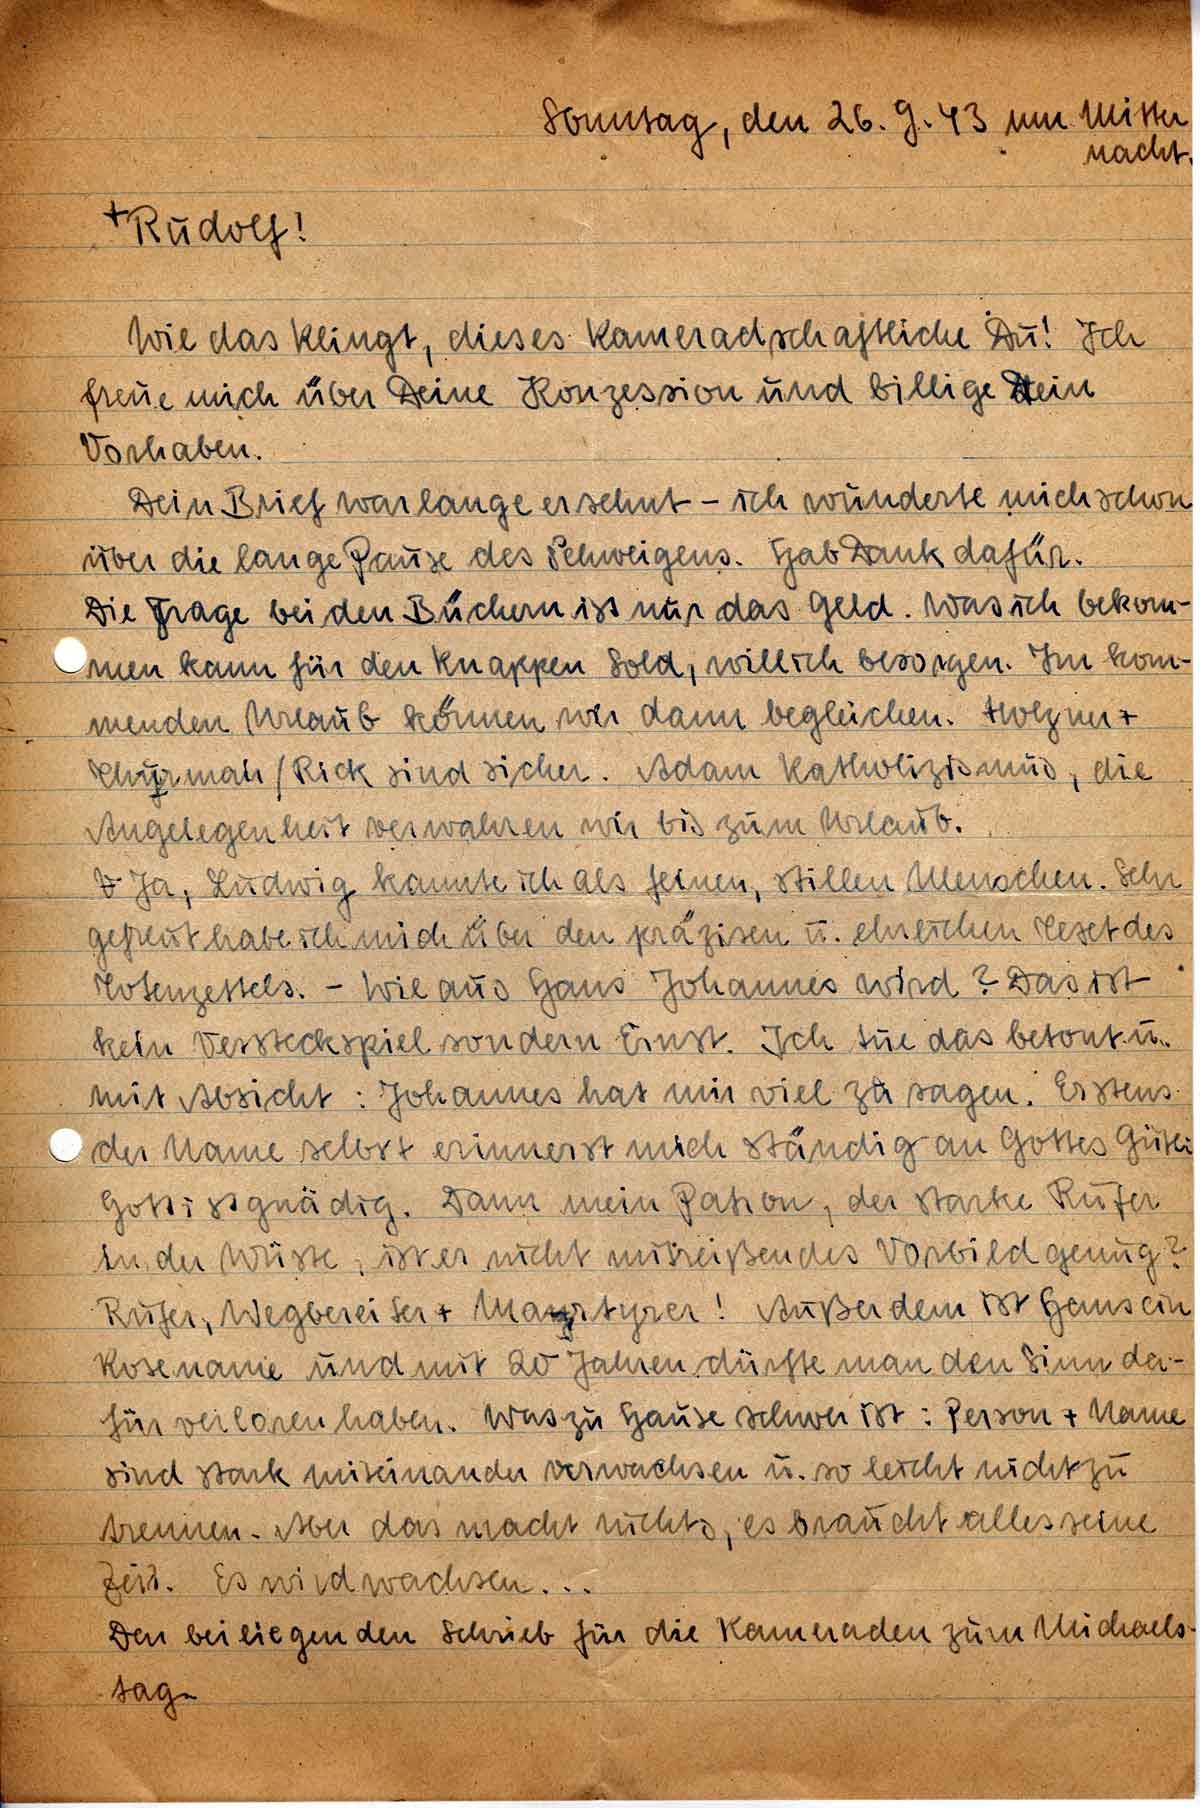 Sonntag, den 26. 9. 43 um Mitter
nacht.
+Rudolf!
Wie das klingt, dieses kameradschaftliche Du! Ich
freue mich über Deine Konzession und billige Dein
Vorhaben.
Dein Brief war lange ersehnt – ich wunderte mich schon
über die lange Pause des Schweigens. Hab Dank dafür.
Die Frage bei den Büchern ist nur das Geld. Was ich bekom-
men kann für den knappen Sold, will ich besorgen. Im kom-
menden Urlaub können wir dann begleichen. Holzner +
/ Rick sind sicher. Adam Katholizismus, die
Angelegenheit verwahren wir bis zum Urlaub.
Ja, Ludwig kannte ich als feinen, stillen Menschen. Sehr
gefreut habe ich mich über den präzisen u. ehrlichen Text des
Totenzettels. – Wie aus Hans Johannes wird? Das ist
kein Versteckspiel sondern Ernst. Ich tue das betont u.
mit Absicht: Johannes hat mir viel zu sagen. Erstens
der Name selbst erinnert mich ständig an Gottes Güte:
Gott ist gnädig. Dann mein Patron, der starke Rufer
in der Wüste, ist er nicht mitreißendes Vorbild genug?
Rufer, Wegbereiter + Martyrer! Außerdem ist Hans ein
Kosename und mit 20 Jahren dürfte man den Sinn da-
für verloren haben. Was zu Hause schwer ist: Person + Name
sind stark miteinander verwachsen u. so leicht nicht zu
trennen. Aber das macht nichts, es braucht alles seine
Zeit. Es wird wachsen...
Den beiliegenden Schrieb für die Kameraden zum Michaels-
tag.